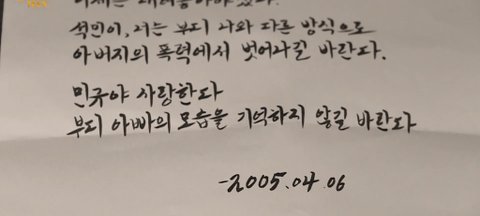 석민이, 너는 부디 나와 다른 방식으로
아버지의 폭력에서 벗어나길 바란다.
민규야 사랑한다
부디 아빠의 모습을 기억하지 않길 바란다
-2005.04.06